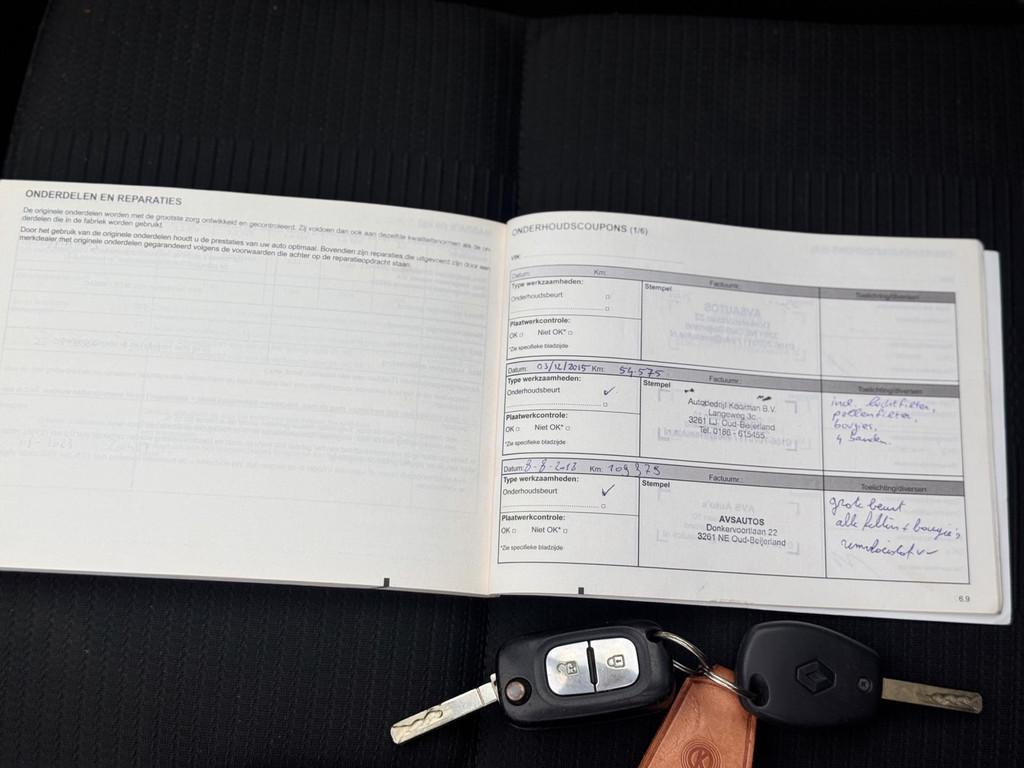 ONDERDELEN EN REPARATIES
De originele onderdelen worden met de grootste zorg ontwikkeld en gecontroleerd. Zij voldoen dan ook aan dezelfde kwaliteitsnormen als de on-
derdelen die in de fabriek worden gebruikt.
Door het gebruik van de originele onderdelen houdt u de prestaties van uw auto optimaal. Bovendien zijn reparaties die uitgevoerd zijn door een
merkdealer met originele onderdelen gegarandeerd volgens de voorwaarden die achter op de reparatieopdracht staan.
ONDERHOUDSCOUPONS (1/6)
VIN:
Datum: Km: Factuurnr.:
Type werkzaamheden: Stempel Toelichting/diversen
Onderhoudsbeurt
Plaatwerkcontrole:
OK Niet OK*
*Zie specifieke bladzijde
Datum: 03/12/2015 Km: 54.575 Factuurnr.:
Type werkzaamheden: Stempel Toelichting/diversen
Onderhoudsbeurt ✓
Plaatwerkcontrole:
OK Niet OK*
*Zie specifieke bladzijde
Autobedrijf Kooiman B.V.
Langeweg 3c
3261 LJ Oud-Beijerland
Tel. 0186 - 615455
incl. luchtfilter,
pollenfilter,
bougies,
4 banden.
Datum: 8-8-2018 Km: 109375 Factuurnr.:
Type werkzaamheden: Stempel Toelichting/diversen
Onderhoudsbeurt ✓
Plaatwerkcontrole:
OK Niet OK*
*Zie specifieke bladzijde
AVSAUTOS
Donkervoortlaan 22
3261 NE Oud-Beijerland
grote beurt
alle filters + bougie's
remvloeistof v
6.9